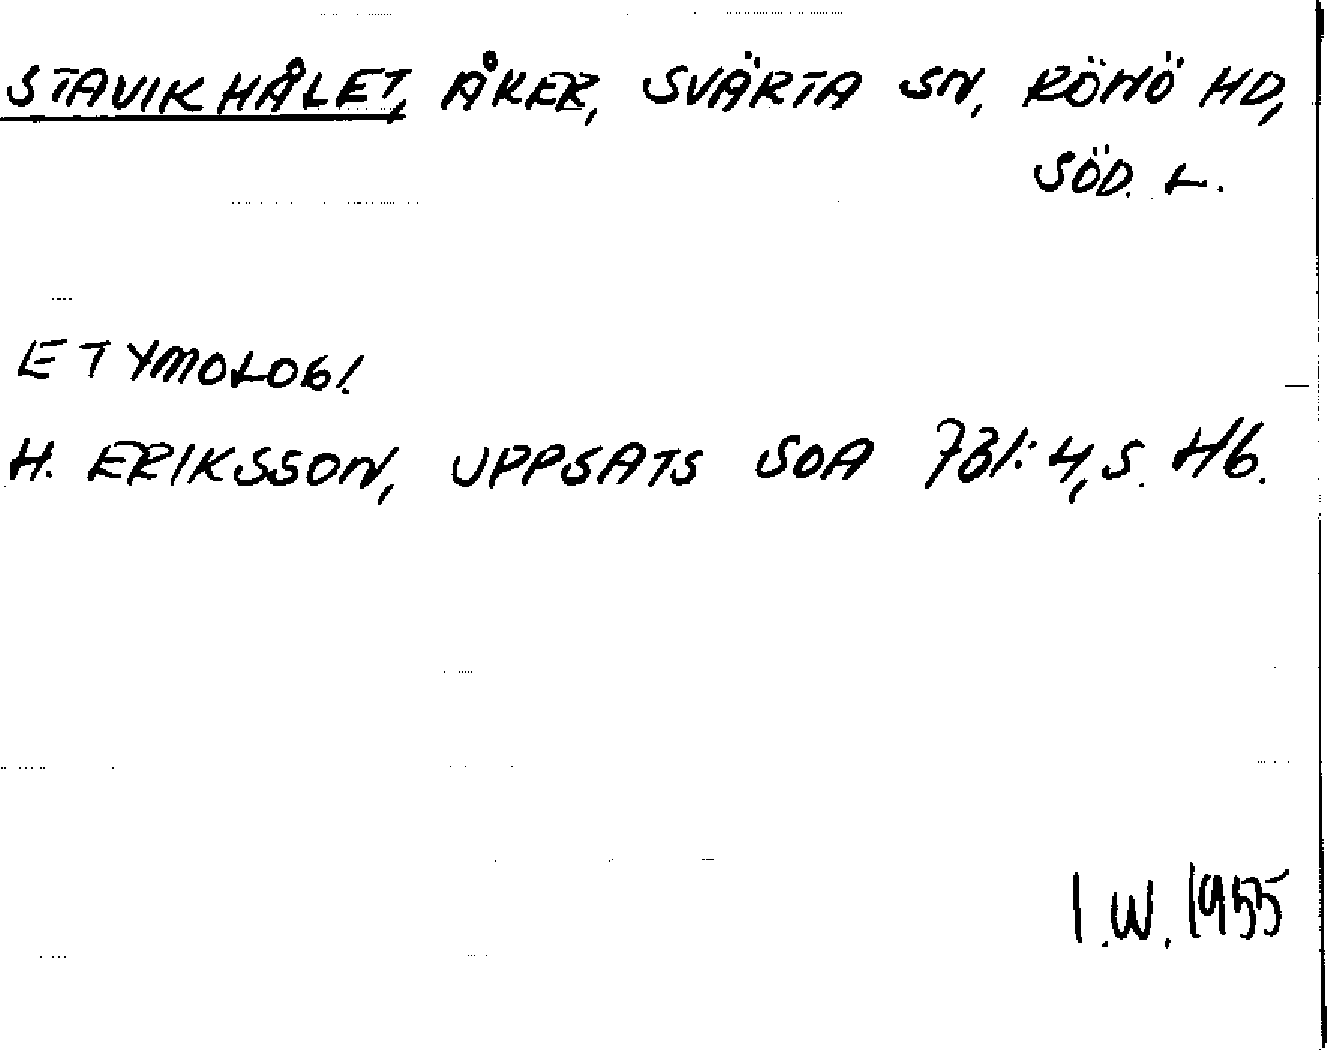 STAVIKHÅLET, ÅKER, SVÄRTA SN, RÖNÖ HD,
SÖD. L.
ETYMOLOGI.
H. ERIKSSON, UPPSATS SOA 731:4, S. 46.
I.W. 1955